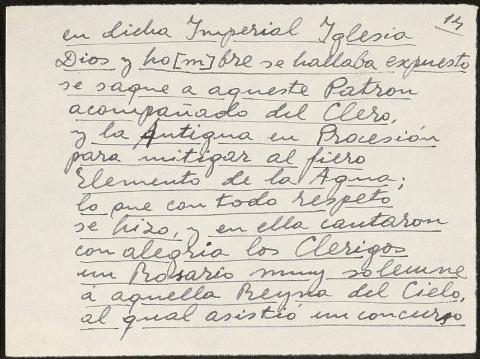 14
en dicha Imperial Iglesia
Dios y ho[m]bre se hallaba expuesto
se saque a aqueste Patron
acompañado del Clero,
y la Antigua en Procesión
para mitigar al fiero
Elemento de la Agua;
lo que con todo respeto
se hizo, y en ella cantaron
con alegria los Clerigos
un Rosario muy solemne
á aquella Reyna del Cielo,
al qual asistió un concurso